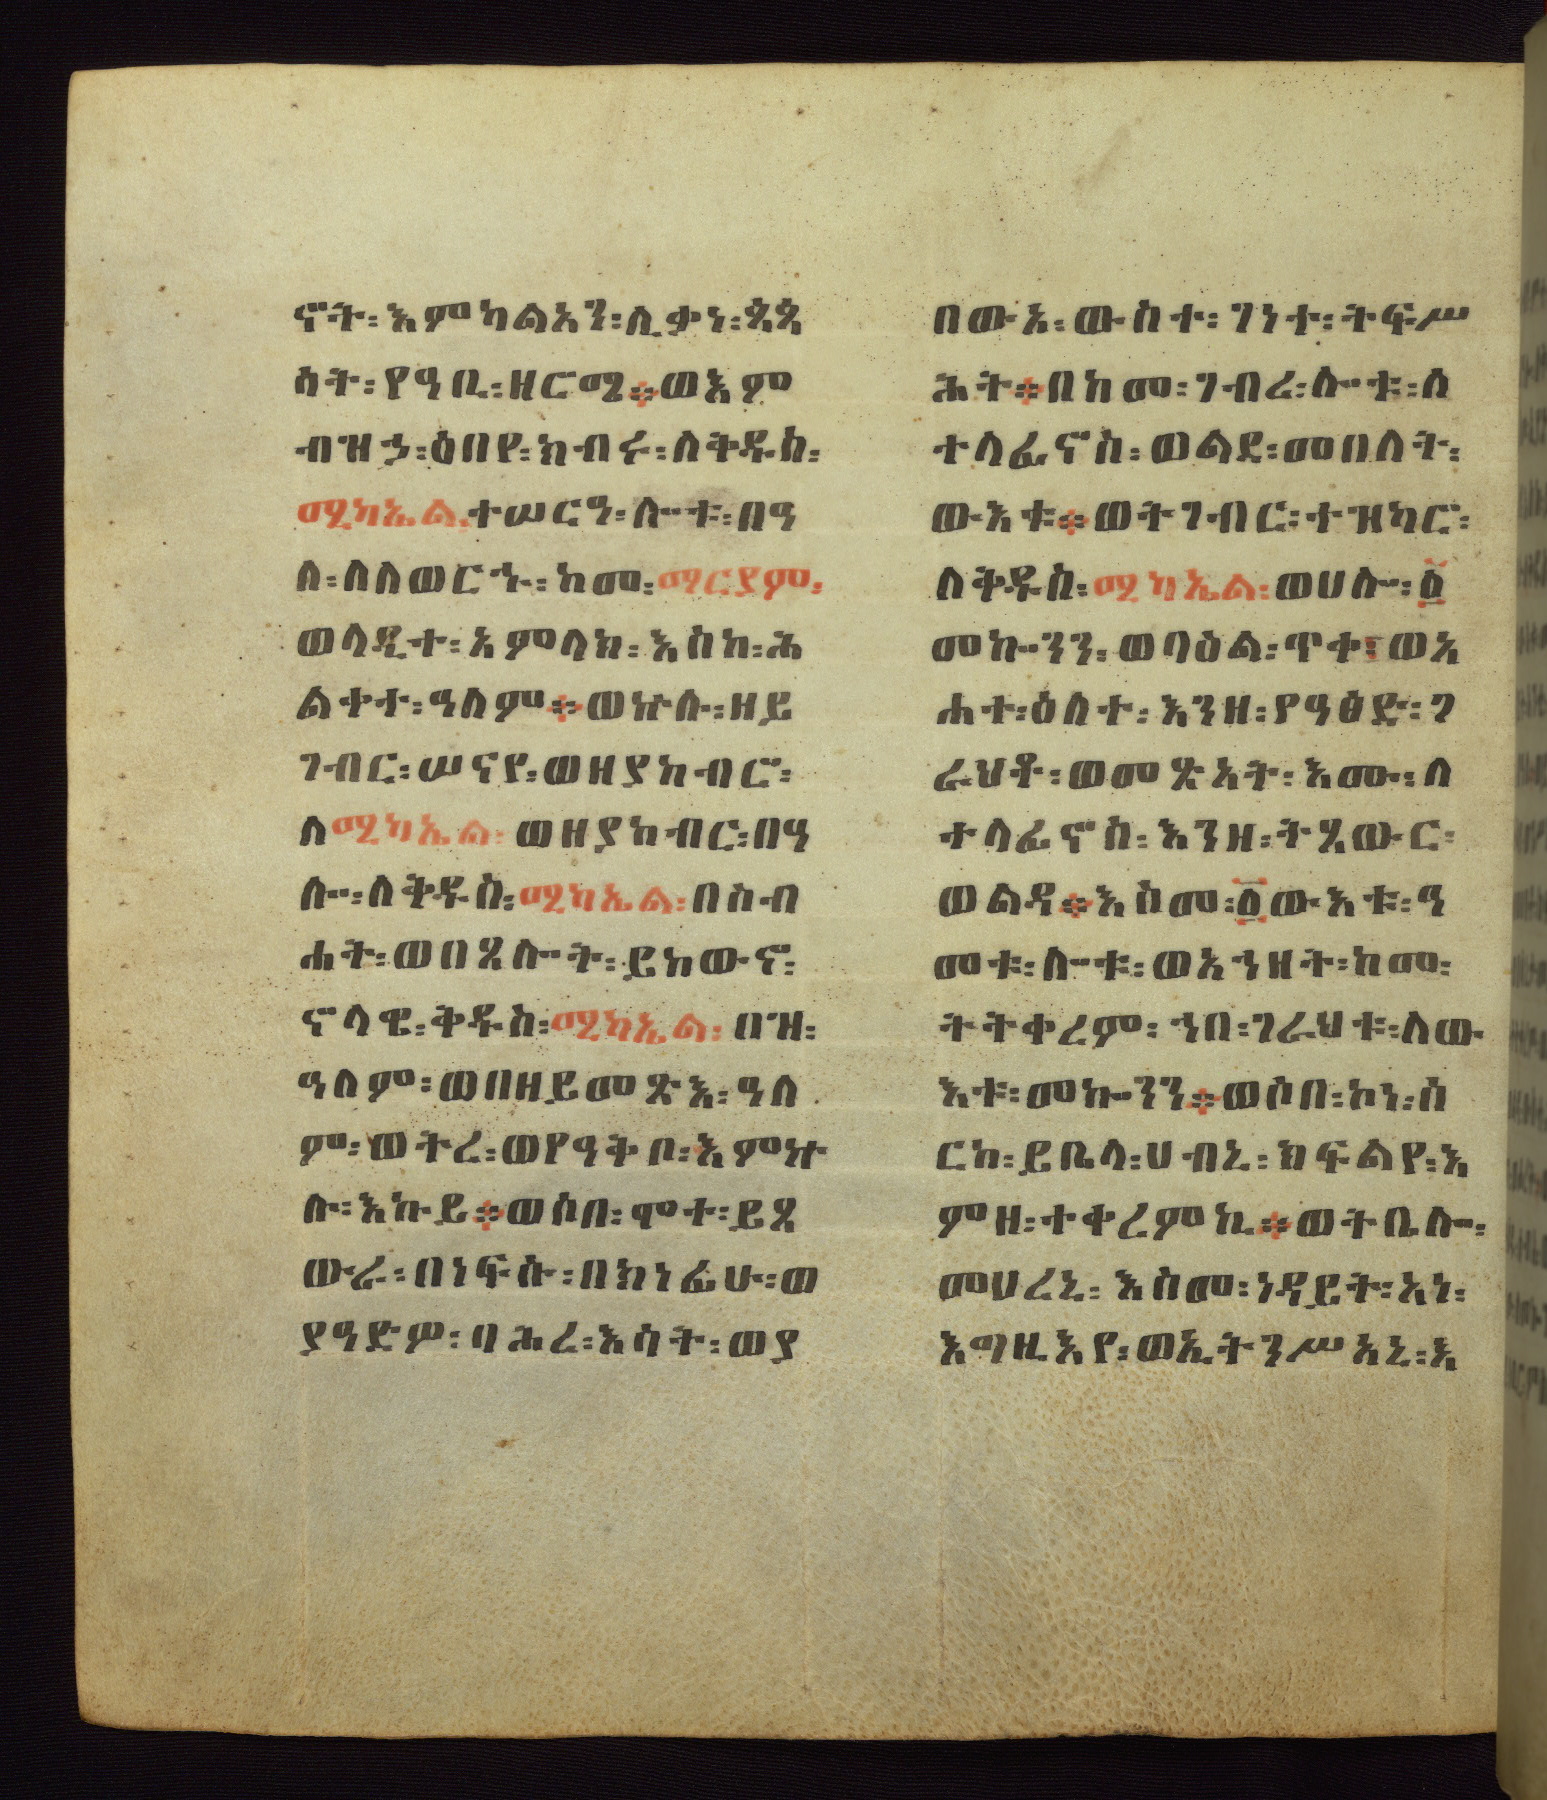 ኖት፡ እምካልአን፡ ሊቃነ፡ ጳጳ
ሳት፡ የዓቢ፡ ዘርሚ።ወእም
ብዝኃ፡ ዕበየ፡ ክብሩ፡ ለቅዱስ፡
ሚካኤል፡ ተሠርዓ፡ ሎቱ፡ በዓ
ለ፡ ለለወርኁ፡ ከመ፡ ማርያም፡
ወላዲተ፡ አምላክ፡ እስከ፡ ሕ
ልቀተ፡ ዓለም።ወኵሉ፡ ዘይ
ገብር፡ ሠናየ፡ ወዘያከብር፡
ለሚካኤል፡ ወዘያከብር፡ በዓ
ሎ፡ ለቅዱስ፡ ሚካኤል፡ በስብ
ሐት፡ ወበጸሎት፡ ይከውኖ፡
ኖላዊ፡ ቅዱስ፡ ሚካኤል፡ በዝ፡
ዓለም፡ ወበዘይመጽእ፡ ዓለ
ም፡ ወትረ፡ ወየዓቅቦ፡ እምኵ
ሉ፡ እኩይ።ወሶበ፡ ሞተ፡ ይጸ
ውሬ፡ በነፍሱ፡ በክነፊሁ፡ ወ
ያዓድም፡ ባሕረ፡ እሳት፡ ወያ
በውእ፡ ውስተ፡ ገነተ፡ ትፍሥ
ሕት።በከመ፡ ገብረ፡ ሎቱ፡ ለ
ተላፊኖስ፡ ወልደ፡ መበለት፡
ውእቱ።ወትገብር፡ ተዝካር፡
ለቅዱስ፡ ሚካኤል፡ ወሀሎ፡ ፩
መኰንን፡ ወባዕል፡ ጥቀ፡ ወአ
ሐተ፡ ዕለተ፡ እንዘ፡ የዓፅድ፡ ገ
ራህቶ፡ ወመጽአት፡ እሙ፡ ለ
ተላፊኖስ፡ እንዘ፡ ትጸውር፡
ወልዳ።እስመ፡ ፩ውእቱ፡ ዓ
መቱ፡ ሎቱ፡ ወአንዘት፡ ከመ፡
ትትቀረም፡ ኀበ፡ ገራህቱ፡ ለው
እቱ፡ መኰንን።ወሶበ፡ ኮነ፡ ሰ
ርከ፡ ይቤላ፡ ሀብኒ፡ ክፍልየ፡ እ
ምዘ፡ ተቀረምኪ።ወትቤሎ፡
መሀረኒ፡ እስመ፡ ነዳይት፡ አነ፡
እግዚእየ፡ ወኢትንሥአኒ፡ እ